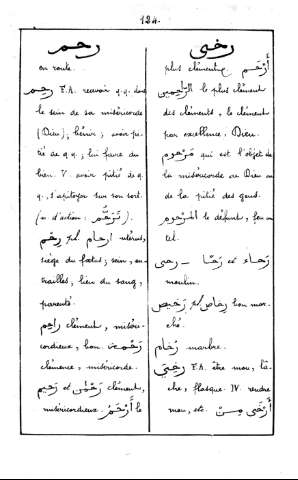 124.
رحم
رخى
en route.
رحم F.A. recevoir q.q. dans
le sein de sa miséricorde
(Dieu); bénir; avoir pi-
tié de q.q.; lui faire du
bien. V. avoir pitié de q.
q., s'apitoyer sur son sort.
(n. d'action: تَرَحُّم).
رحم pl. ارحام utérus,
siège du fœtus; sein, en-
trailles; lien du sang,
parenté.
راحم clément, miséri-
cordieux, bon. رحمة
clémence, miséricorde.
رحمٰن et رحيم clément,
miséricordieux. أرحم le
plus clément. أرحم
الراحمين le plus clément
des cléments, le clément
par excellence: Dieu.
مرحوم qui est l'objet de
la miséricorde de Dieu ou
de la pitié des gens.
المرحوم le défunt, feu un
tel.
رحى – رحا et رحاء
moulin.
رخيص pl. رخاص bon mar-
ché.
رخام marbre.
رخى F.A. être mou, lâ-
che, flasque. IV. rendre
mou, etc. أرخى من